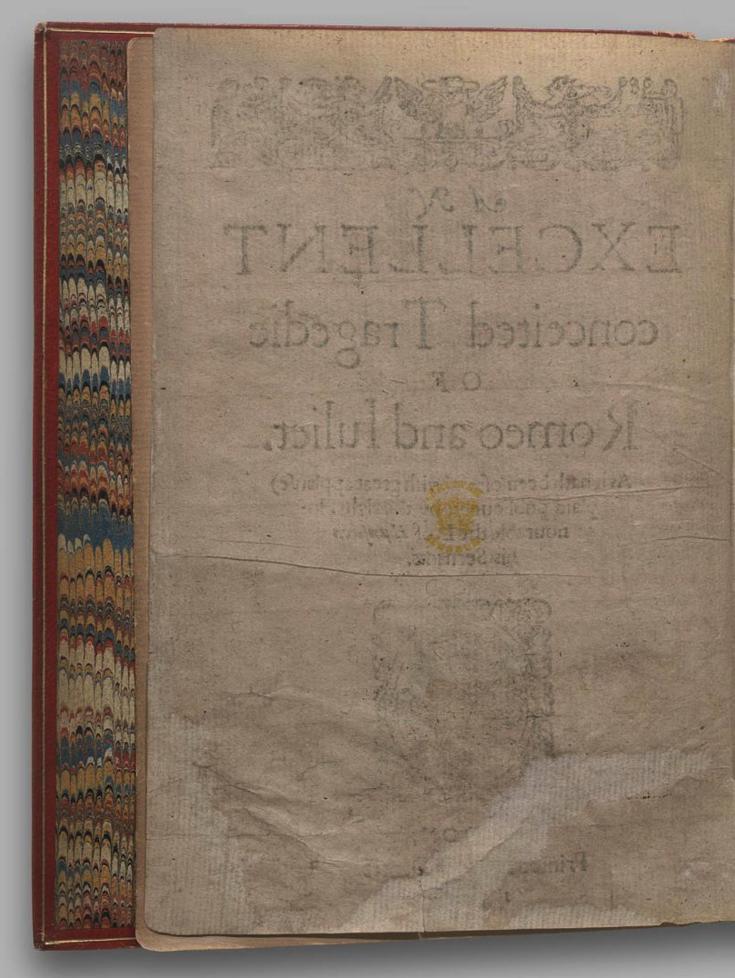 AN
EXCELLENT
conceited Tragedie
OF
Romeo and Iuliet.
As it hath been often (with great applause)
plaid publiquely, by the right Ho-
nourable the L. of Hunsdon
his Seruants.
Printed